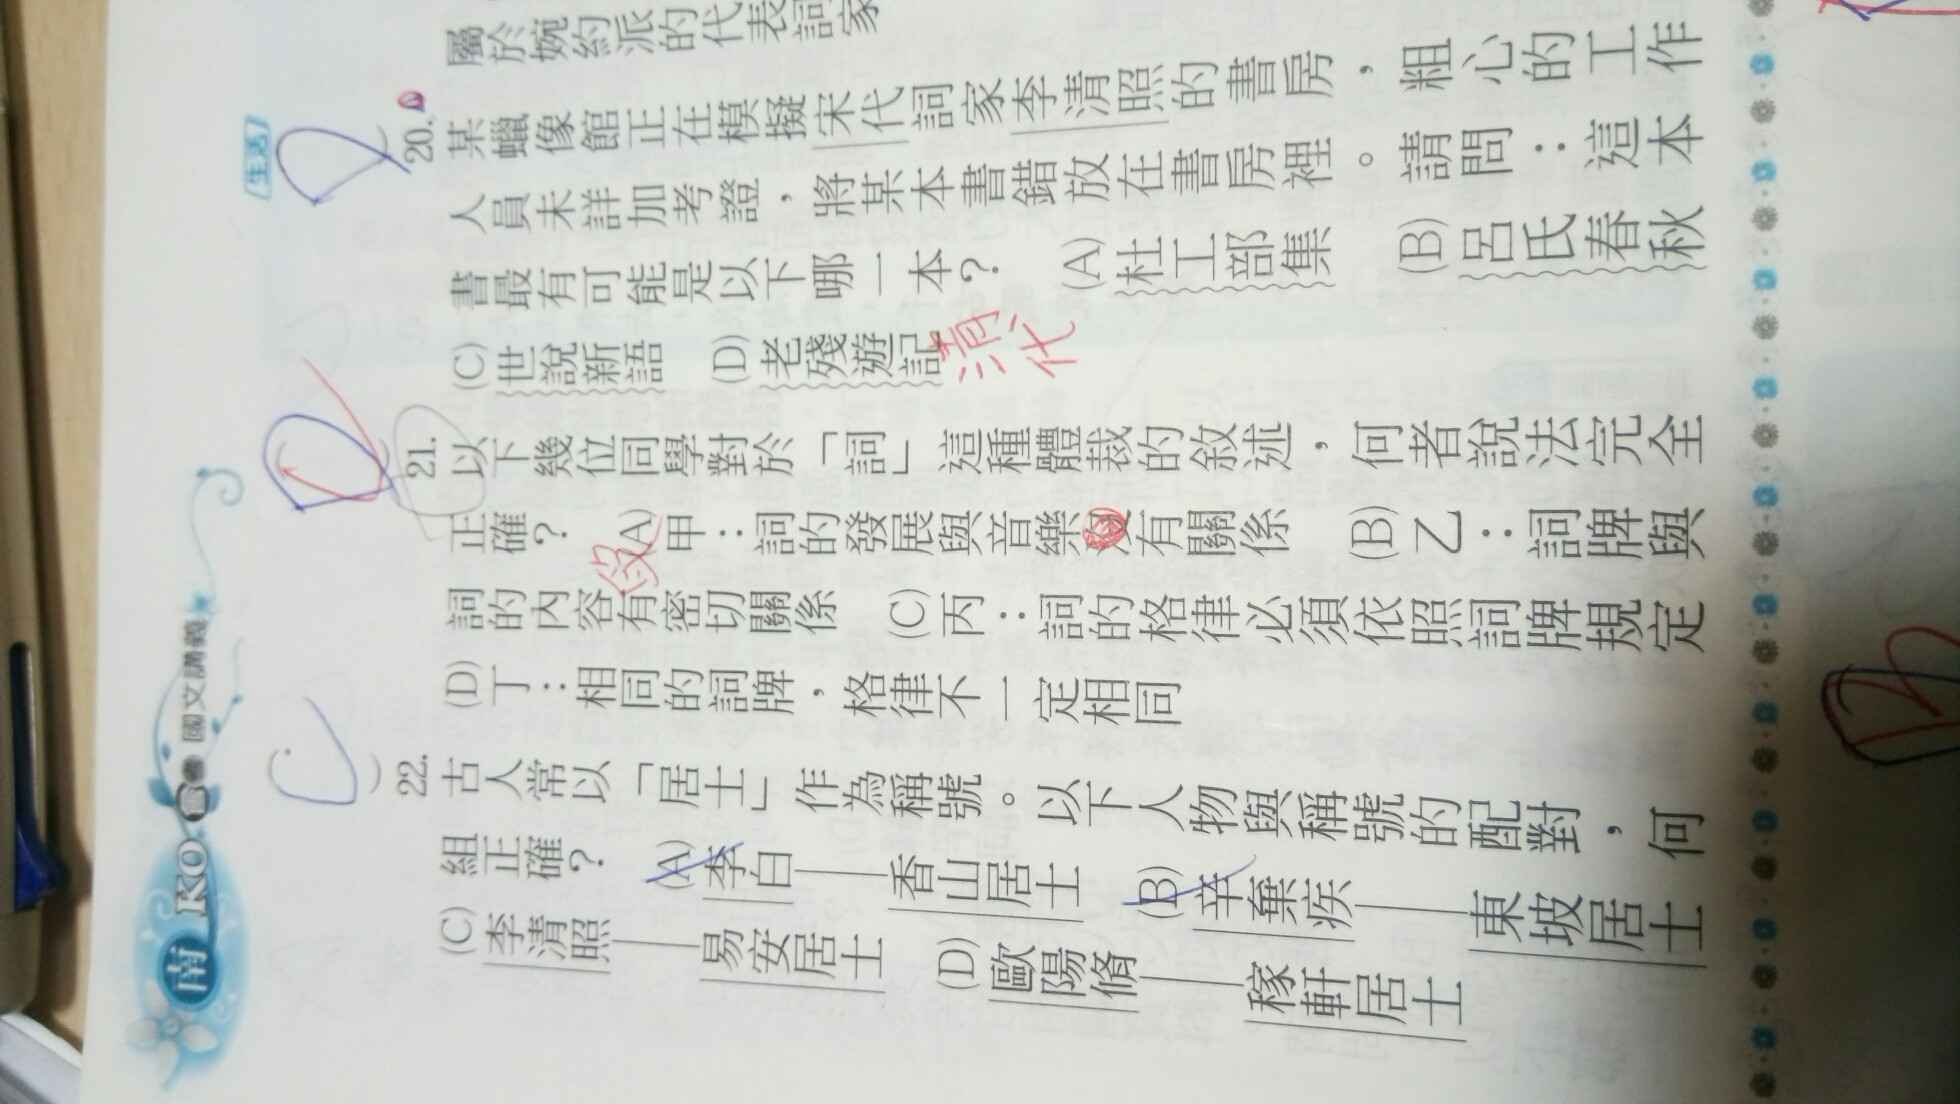 屬於婉約派的代表詞家
生活
D
20.某蠟像館正在模擬宋代詞家李清照的書房,粗心的工作
人員未詳加考證,將某本書錯放在書房裡。請問:這本
書最有可能是以下哪一本? (A)杜工部集 (B)呂氏春秋
(C)世說新語 (D)老殘遊記
清代
D
21.以下幾位同學對於「詞」這種體裁的敘述,何者說法完全
正確? (A)甲:詞的發展與音樂沒有關係 (B)乙:詞牌與
詞的內容有密切關係 (C)丙:詞的格律必須依照詞牌規定
(D)丁:相同的詞牌,格律不一定相同
C
22.古人常以「居士」作為稱號。以下人物與稱號的配對,何
組正確? (A)李白——香山居士 (B)辛棄疾——東坡居士
(C)李清照——易安居士 (D)歐陽脩——稼軒居士
南 KO 國文講義